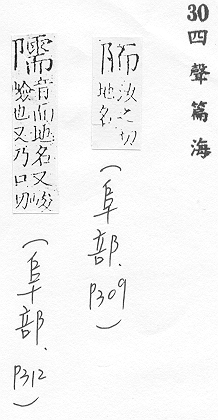 30四聲篇海
陑汝之切
地名
(阜部.P309)
隭音而地名又峻
嶮也又乃口切
(阜部.P312)